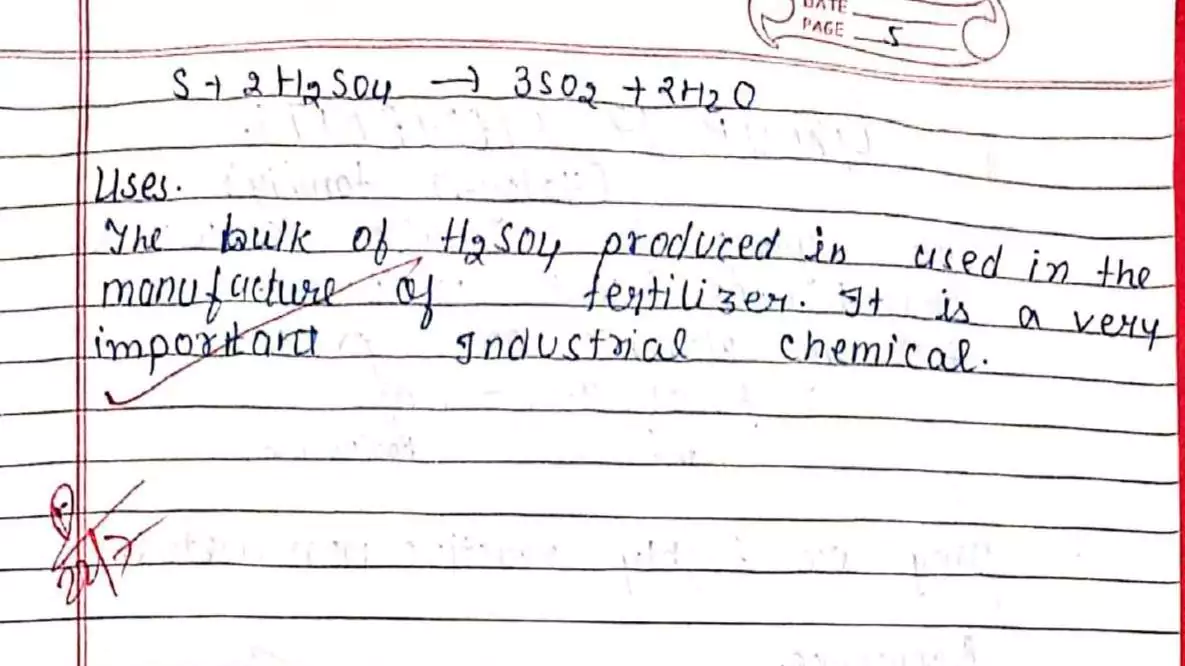 DATE
PAGE 5
S + 2H2SO4 → 3SO2 + 2H2O
Uses.
The bulk of H2SO4 produced in used in the
manufacture of fertilizer. It is a very
important Industrial chemical.